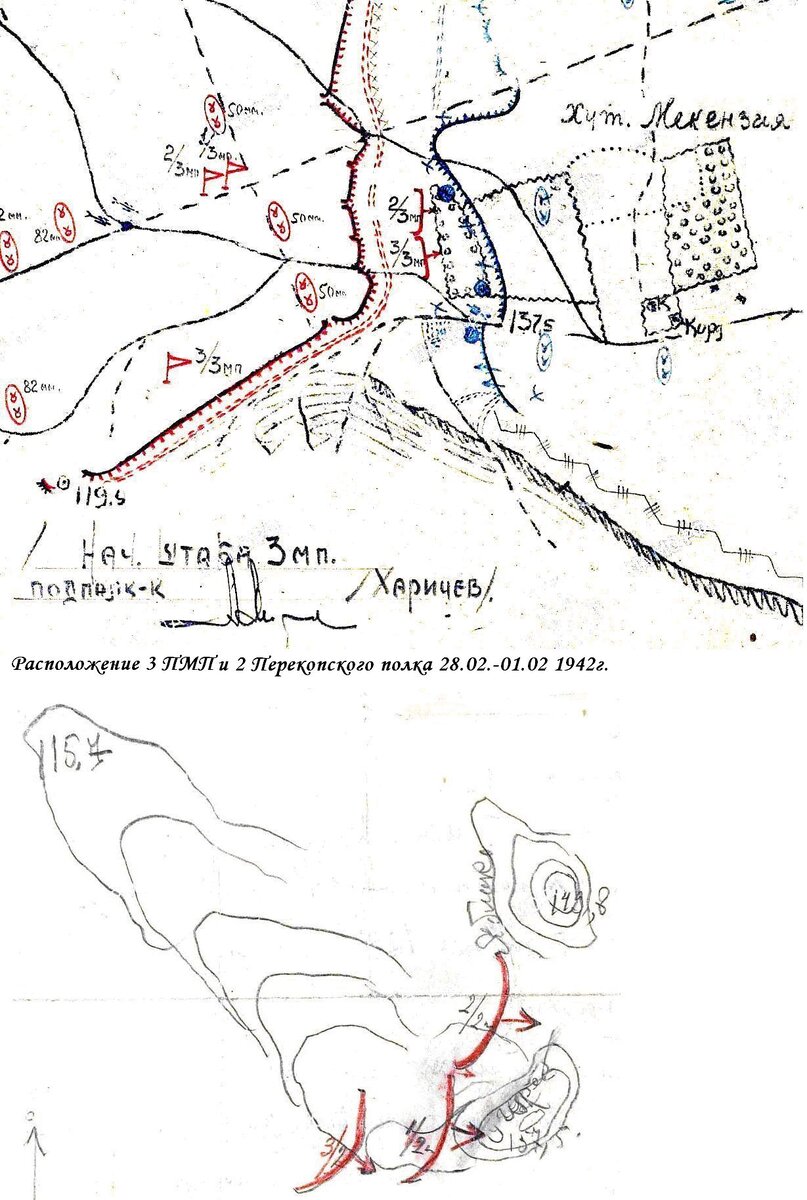 50мм.
1/3мр.
2/3мп
Хут. Мекензия
2/3мп
82мм.
50мм.
3/3мп
50мм
137.5
К
3/3мп
82мм.
119.6
Нач. штаба 3мп.
подполк-к /Харичев/.
Расположение 3 ПМП и 2 Перекопского полка 28.02.-01.02 1942г.
115,7
2/2
1/2
3/
137,5.